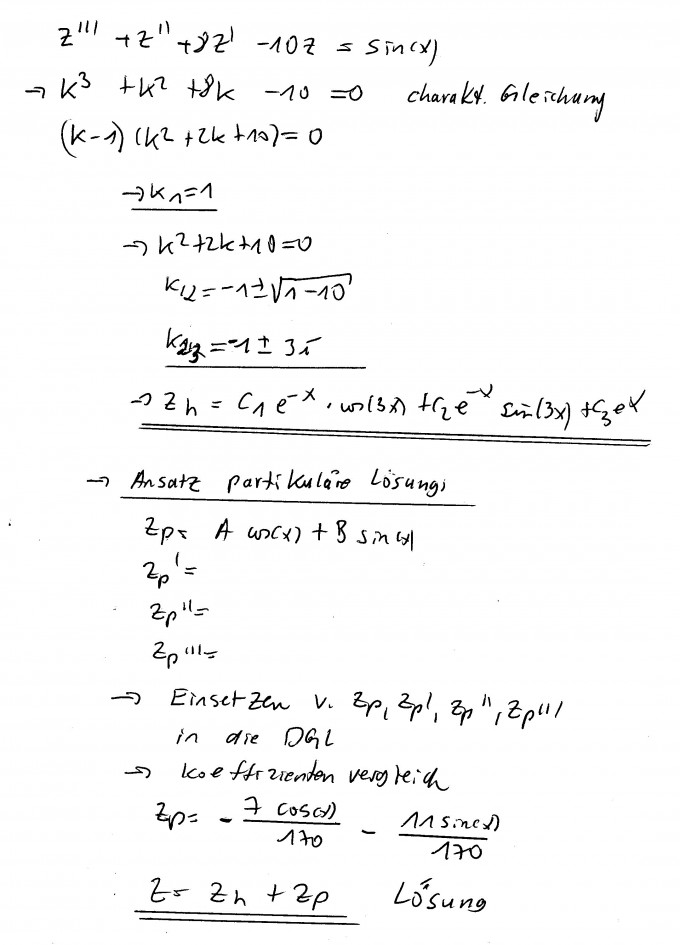 z''' + z'' + 8z' - 10z = sin(x)
→ k³ + k² + 8k - 10 = 0 charakt. Gleichung
(k-1) (k² + 2k + 10) = 0
→ k₁ = 1
→ k² + 2k + 10 = 0
k₁,₂ = -1 ± √(1-10)
k₂,₃ = -1 ± 3i
→ z_h = C₁ e^(-x) · cos(3x) + C₂ e^(-x) sin(3x) + C₃ e^x
→ Ansatz partikuläre Lösung:
z_p = A cos(x) + B sin(x)
z_p' =
z_p'' =
z_p''' =
→ Einsetzen v. z_p, z_p', z_p'', z_p'''
in die DGL
→ Koeffizientenvergleich
z_p = - 7 cos(x)/170 - 11 sin(x)/170
z = z_h + z_p Lösung